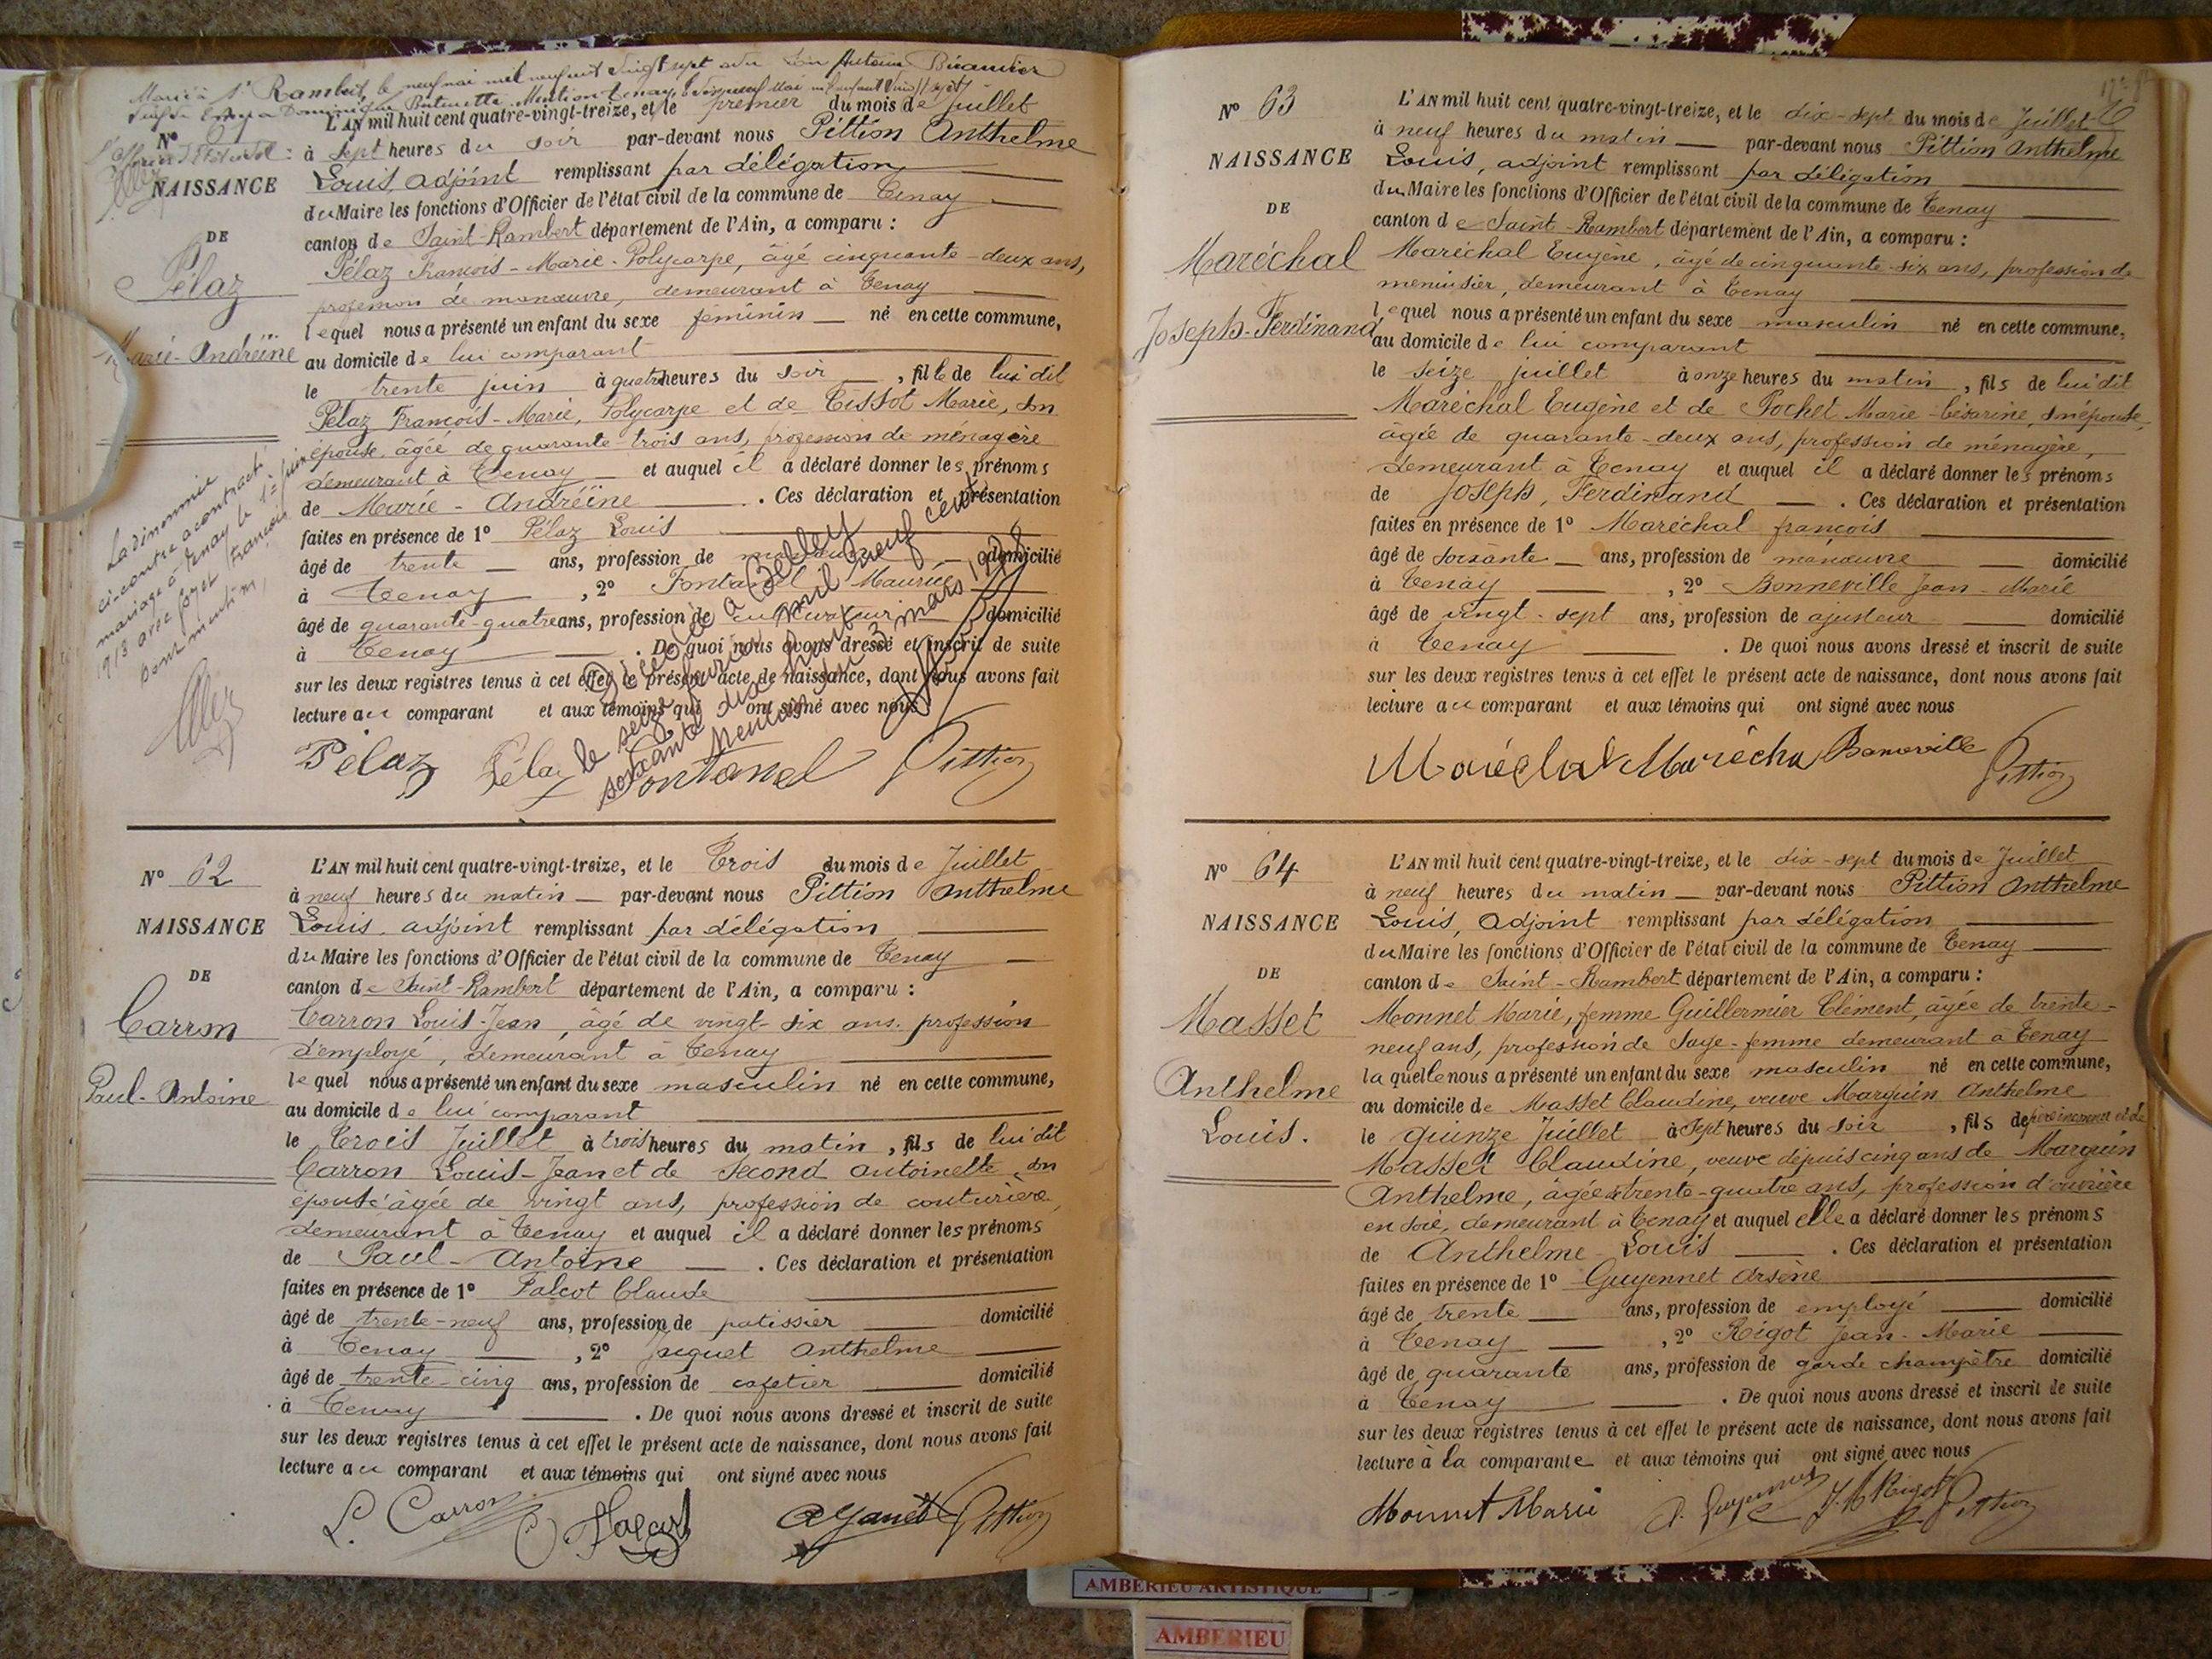 Marié à St Rambert le neuf mai mil neuf cent vingt sept avec
L'AN mil huit cent quatre-vingt-treize, et le premier du mois de Juillet
à sept heures du soir par-devant nous Pittion Anthelme
Louis, adjoint remplissant par délégation
du Maire les fonctions d'Officier de l'état civil de la commune de Tenay
canton de Saint-Rambert département de l'Ain, a comparu :
Pélaz François-Marie-Polycarpe, âgé cinquante-deux ans,
profession de manœuvre, demeurant à Tenay
lequel nous a présenté un enfant du sexe féminin né en cette commune,
au domicile de lui comparant
le trente juin à quatre heures du soir, fille de lui dit
Pélaz François-Marie, Polycarpe et de Tissot Marie, son
épouse âgée de quarante-trois ans, profession de ménagère
demeurant à Tenay et auquel il a déclaré donner les prénoms
de Marie-Andréïne. Ces déclaration et présentation
faites en présence de 1° Pélaz Louis
âgé de trente ans, profession de domicilié
à Tenay, 2° Fontanel Maurice
âgé de quarante-quatre ans, profession de domicilié
à Tenay. De quoi nous avons dressé et inscrit de suite
sur les deux registres tenus à cet effet le présent acte de naissance, dont nous avons fait
lecture au comparant et aux témoins qui ont signé avec nous
Pélaz Pélaz Fontanel Pittion
N°
NAISSANCE
DE
Pélaz
Marie-Andréïne
La dénommée
ci-contre a contracté
mariage à Tenay le 1er juin
1913 avec François
pour mention,
Décédée à Belley
le seize
soixante dix mil neuf cent
Mention du 3 mars
N° 62
NAISSANCE
DE
Carron
Paul-Antoine
L'AN mil huit cent quatre-vingt-treize, et le Trois du mois de Juillet
à neuf heures du matin par-devant nous Pittion Anthelme
Louis, adjoint remplissant par délégation
du Maire les fonctions d'Officier de l'état civil de la commune de Tenay
canton de Saint-Rambert département de l'Ain, a comparu :
Carron Louis-Jean, âgé de vingt-six ans, profession
d'employé, demeurant à Tenay
lequel nous a présenté un enfant du sexe masculin né en cette commune,
au domicile de lui comparant
le Trois Juillet à trois heures du matin, fils de lui dit
Carron Louis-Jean et de Second Antoinette son
épouse âgée de vingt ans, profession de couturière
demeurant à Tenay et auquel il a déclaré donner les prénoms
de Paul-Antoine. Ces déclaration et présentation
faites en présence de 1° Falcot Claude
âgé de trente-neuf ans, profession de patissier domicilié
à Tenay, 2° Jaquet Anthelme
âgé de trente-cinq ans, profession de cafetier domicilié
à Tenay. De quoi nous avons dressé et inscrit de suite
sur les deux registres tenus à cet effet le présent acte de naissance, dont nous avons fait
lecture au comparant et aux témoins qui ont signé avec nous
L. Carron C. Falcot Pittion
N° 63
NAISSANCE
DE
Maréchal
Joseph-Ferdinand
L'AN mil huit cent quatre-vingt-treize, et le dix-sept du mois de Juillet
à neuf heures du matin par-devant nous Pittion Anthelme
Louis, adjoint remplissant par délégation
du Maire les fonctions d'Officier de l'état civil de la commune de Tenay
canton de Saint-Rambert département de l'Ain, a comparu :
Maréchal Eugène, âgé de cinquante-six ans, profession de
menuisier, demeurant à Tenay
lequel nous a présenté un enfant du sexe masculin né en cette commune,
au domicile de lui comparant
le seize juillet à onze heures du matin, fils de lui dit
Maréchal Eugène et de Pochet Marie-Césarine, son épouse,
âgée de quarante-deux ans, profession de ménagère,
demeurant à Tenay et auquel il a déclaré donner les prénoms
de Joseph, Ferdinand. Ces déclaration et présentation
faites en présence de 1° Maréchal françois
âgé de soixante ans, profession de manœuvre domicilié
à Tenay, 2° Bonneville Jean-Marie
âgé de vingt-sept ans, profession de ajusteur domicilié
à Tenay. De quoi nous avons dressé et inscrit de suite
sur les deux registres tenus à cet effet le présent acte de naissance, dont nous avons fait
lecture au comparant et aux témoins qui ont signé avec nous
Maréchal Maréchal Bonneville Pittion
N° 64
NAISSANCE
DE
Masset
Anthelme
Louis.
L'AN mil huit cent quatre-vingt-treize, et le dix-sept du mois de Juillet
à neuf heures du matin par-devant nous Pittion Anthelme
Louis, adjoint remplissant par délégation
du Maire les fonctions d'Officier de l'état civil de la commune de Tenay
canton de Saint-Rambert département de l'Ain, a comparu :
Monnet Marie, femme Guillermier Clément, âgée de trente-
neuf ans, profession de Sage-femme demeurant à Tenay
laquelle nous a présenté un enfant du sexe masculin né en cette commune,
au domicile de Masset Claudine, veuve Marguin Anthelme
le quinze Juillet à sept heures du soir, fils de père inconnu et de
Masset Claudine, veuve depuis cinq ans de Marguin
Anthelme, âgée de trente-quatre ans, profession d'ouvrière
en soie, demeurant à Tenay et auquel elle a déclaré donner les prénoms
de Anthelme-Louis. Ces déclaration et présentation
faites en présence de 1° Guyennet Arsène
âgé de trente ans, profession de employé domicilié
à Tenay, 2° Rigot Jean-Marie
âgé de quarante ans, profession de garde champêtre domicilié
à Tenay. De quoi nous avons dressé et inscrit de suite
sur les deux registres tenus à cet effet le présent acte de naissance, dont nous avons fait
lecture à la comparante et aux témoins qui ont signé avec nous
Monnet Marie A. Guyennet J M Rigot Pittion
AMBERIEU ARTISTIQUE
AMBERIEU